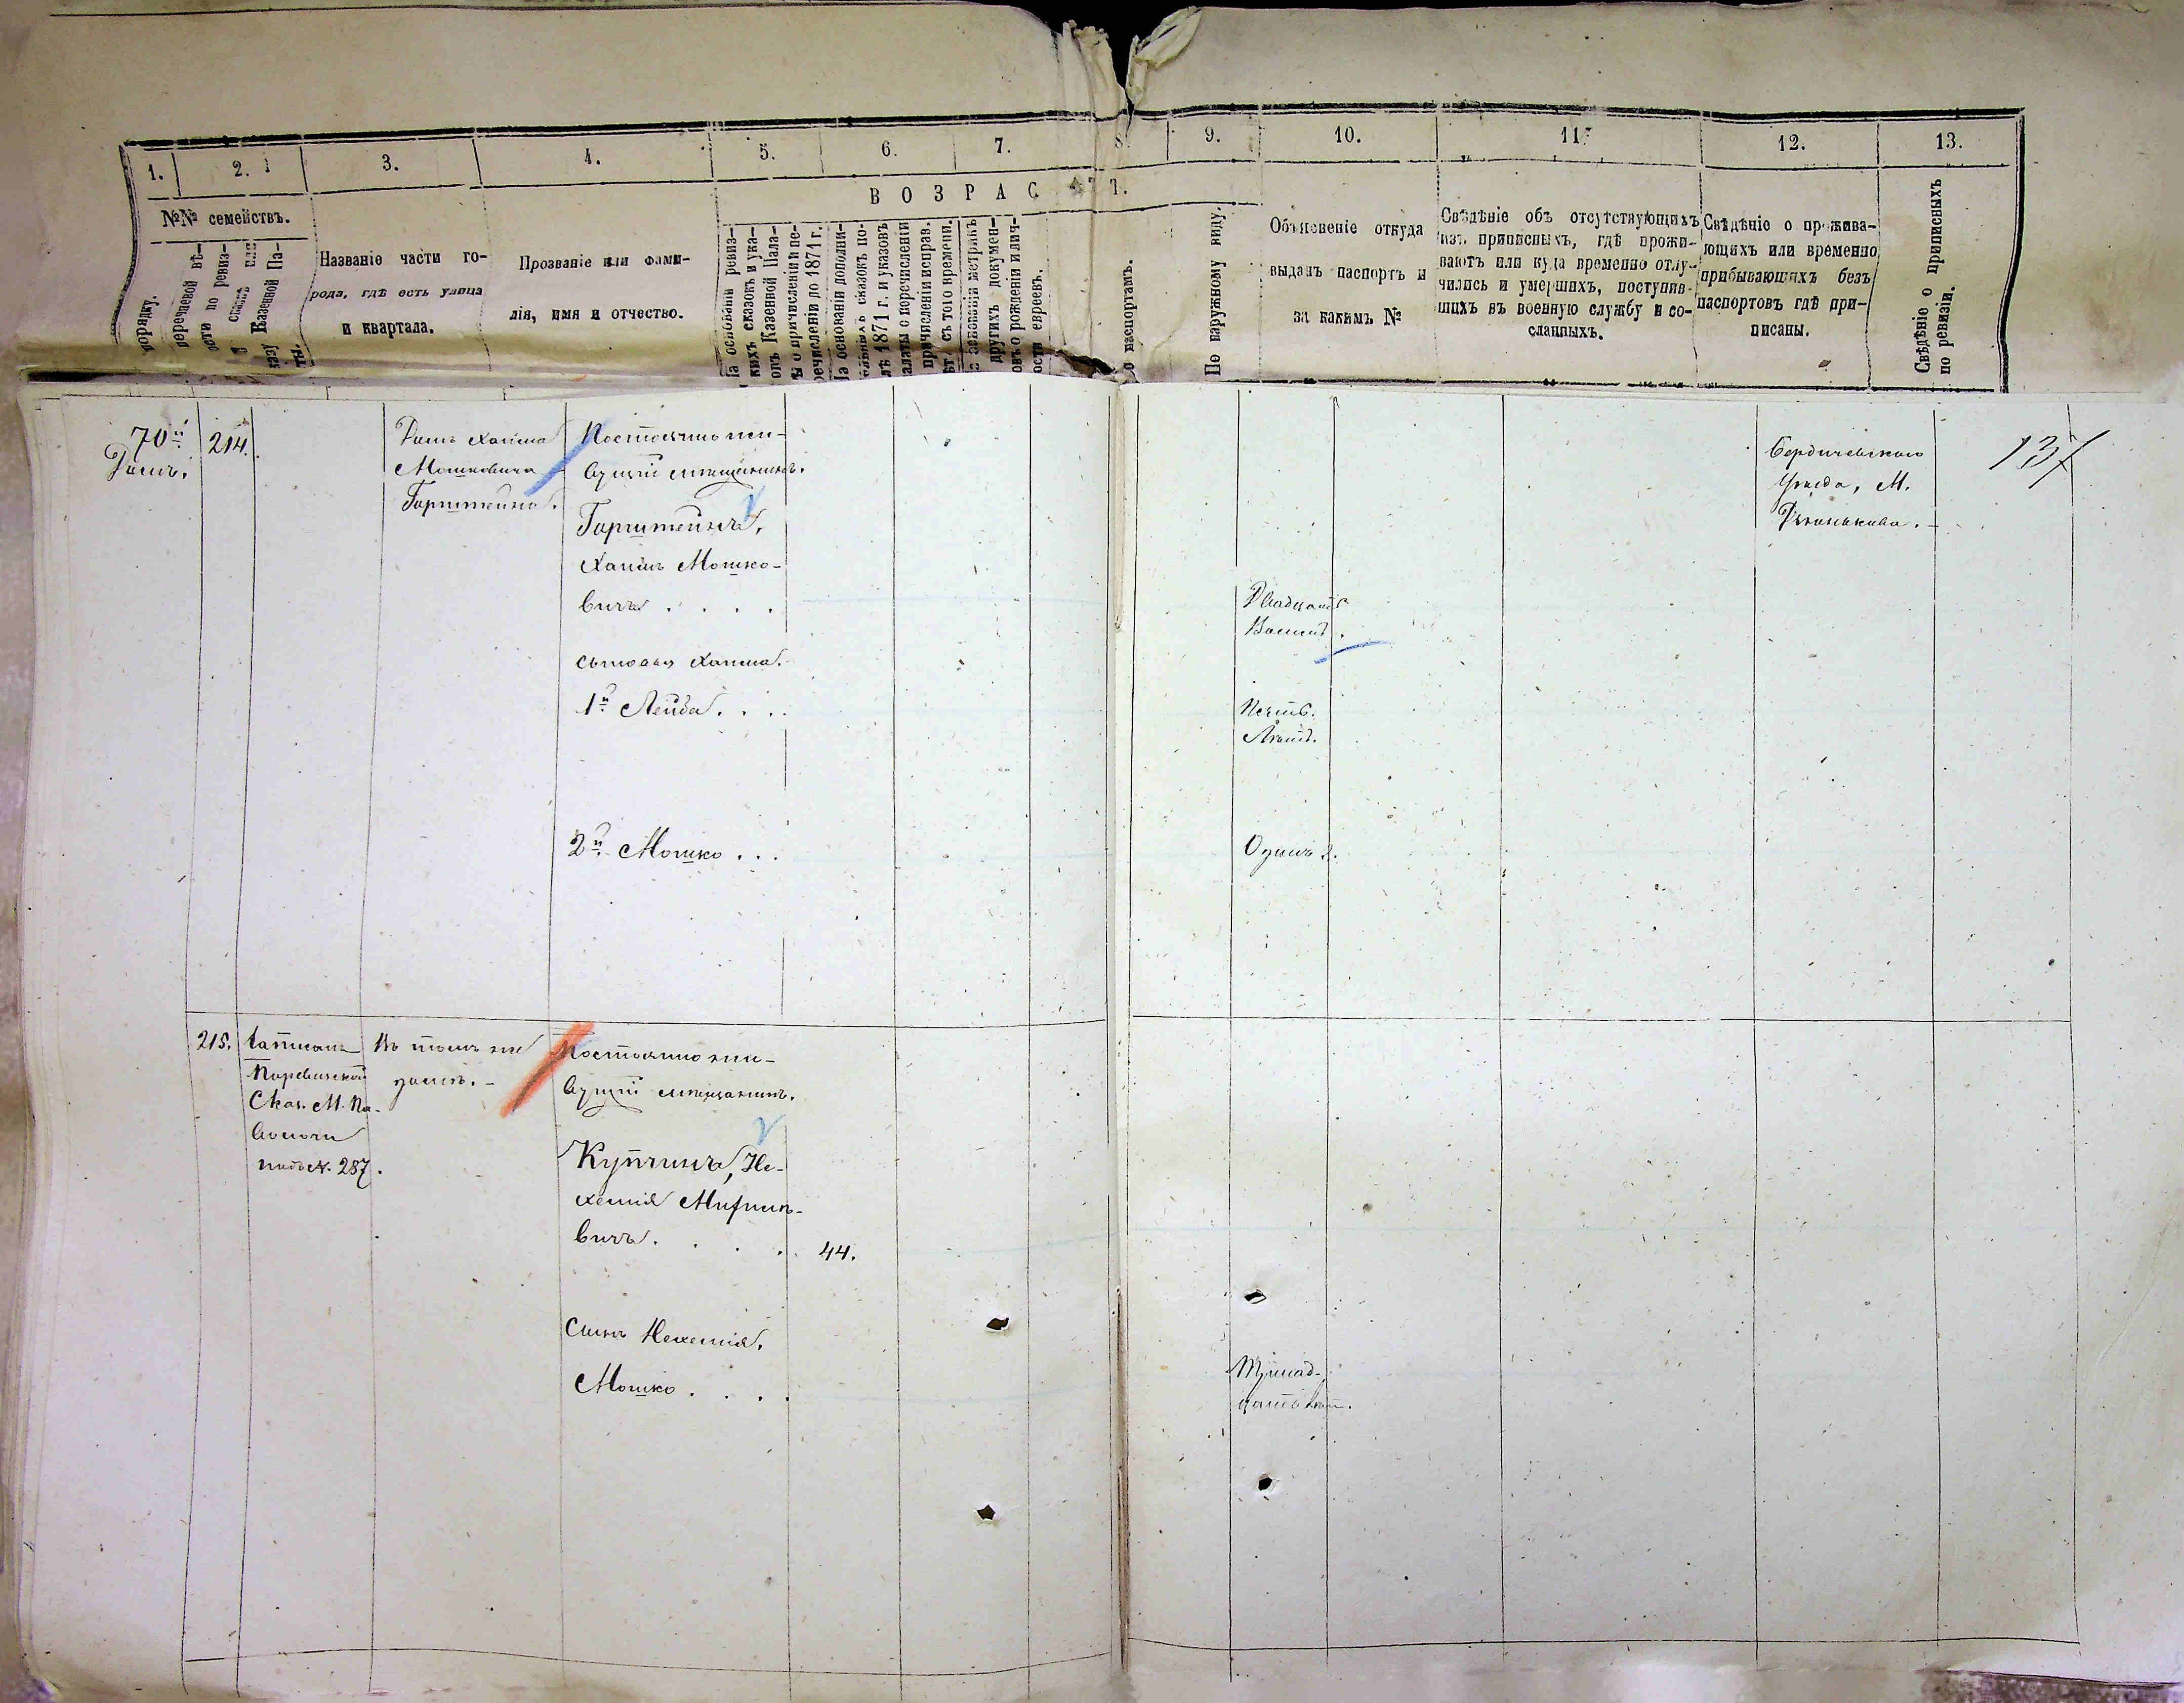 1. 2. 3. 4. 5. 6. 7. 8. 9. 10. 11. 12. 13.
№№ семействъ.
порядку.
перечневой вѣ-
ости по ревиз-
сказкѣ или
казу Казенной Па-
ты.
Названіе части го-
рода, гдѣ есть улица
и квартала.
Прозваніе или фами-
лія, имя и отчество.
ВОЗРАСТ
На основаніи ревиз-
кихъ сказокъ и ука-
овъ Казенной Пала-
ы о причисленіи и пе-
речисленіи до 1871 г.
На основаніи дополни-
ельныхъ сказокъ по-
лѣ 1871 г. и указовъ
алаты о перечисленіи
причисленіи исправ.
ѣт. съ того времени.
метрикъ
другихъ докумен-
овъ о рожденіи и лич-
ости евреевъ.
о паспортамъ.
По наружному виду.
Объясненіе откуда
выданъ паспортъ и
за какимъ №
Свѣдѣніе объ отсутствующихъ
изъ приписныхъ, гдѣ прожи-
ваютъ или куда временно отлу-
чились и умершихъ, поступив-
шихъ въ военную службу и со-
сланныхъ.
Свѣдѣніе о прожива-
ющихъ или временно
прибывающихъ безъ
паспортовъ гдѣ при-
писаны.
Свѣдѣніе о приписныхъ
по ревизіи.
70й
Домъ.
214.
Домъ Хаима
Мошковича
Горштейна.
Постоянно жи-
вущій мещанинъ.
Горштейнъ,
Хаимъ Мошко-
вичъ . . . .
Двадцать
Восемь.
Бердичевскаго
Уѣзда, М.
137
сыновья Хаима.
1й Лейба. . .
Шесть
Лѣтъ.
2й Мошко . . .
Одинъ г.
215.
Записанъ
Ска. М. Па-
волочи
подъ №. 287.
Въ томъ же
домѣ. -
Постоянно жи-
вущій мещанинъ.
Купчикъ, Не-
хемія
вичъ. . . . 44.
Сынъ Нехемія.
Мошко . . . .
Тринад-
цать лѣт.